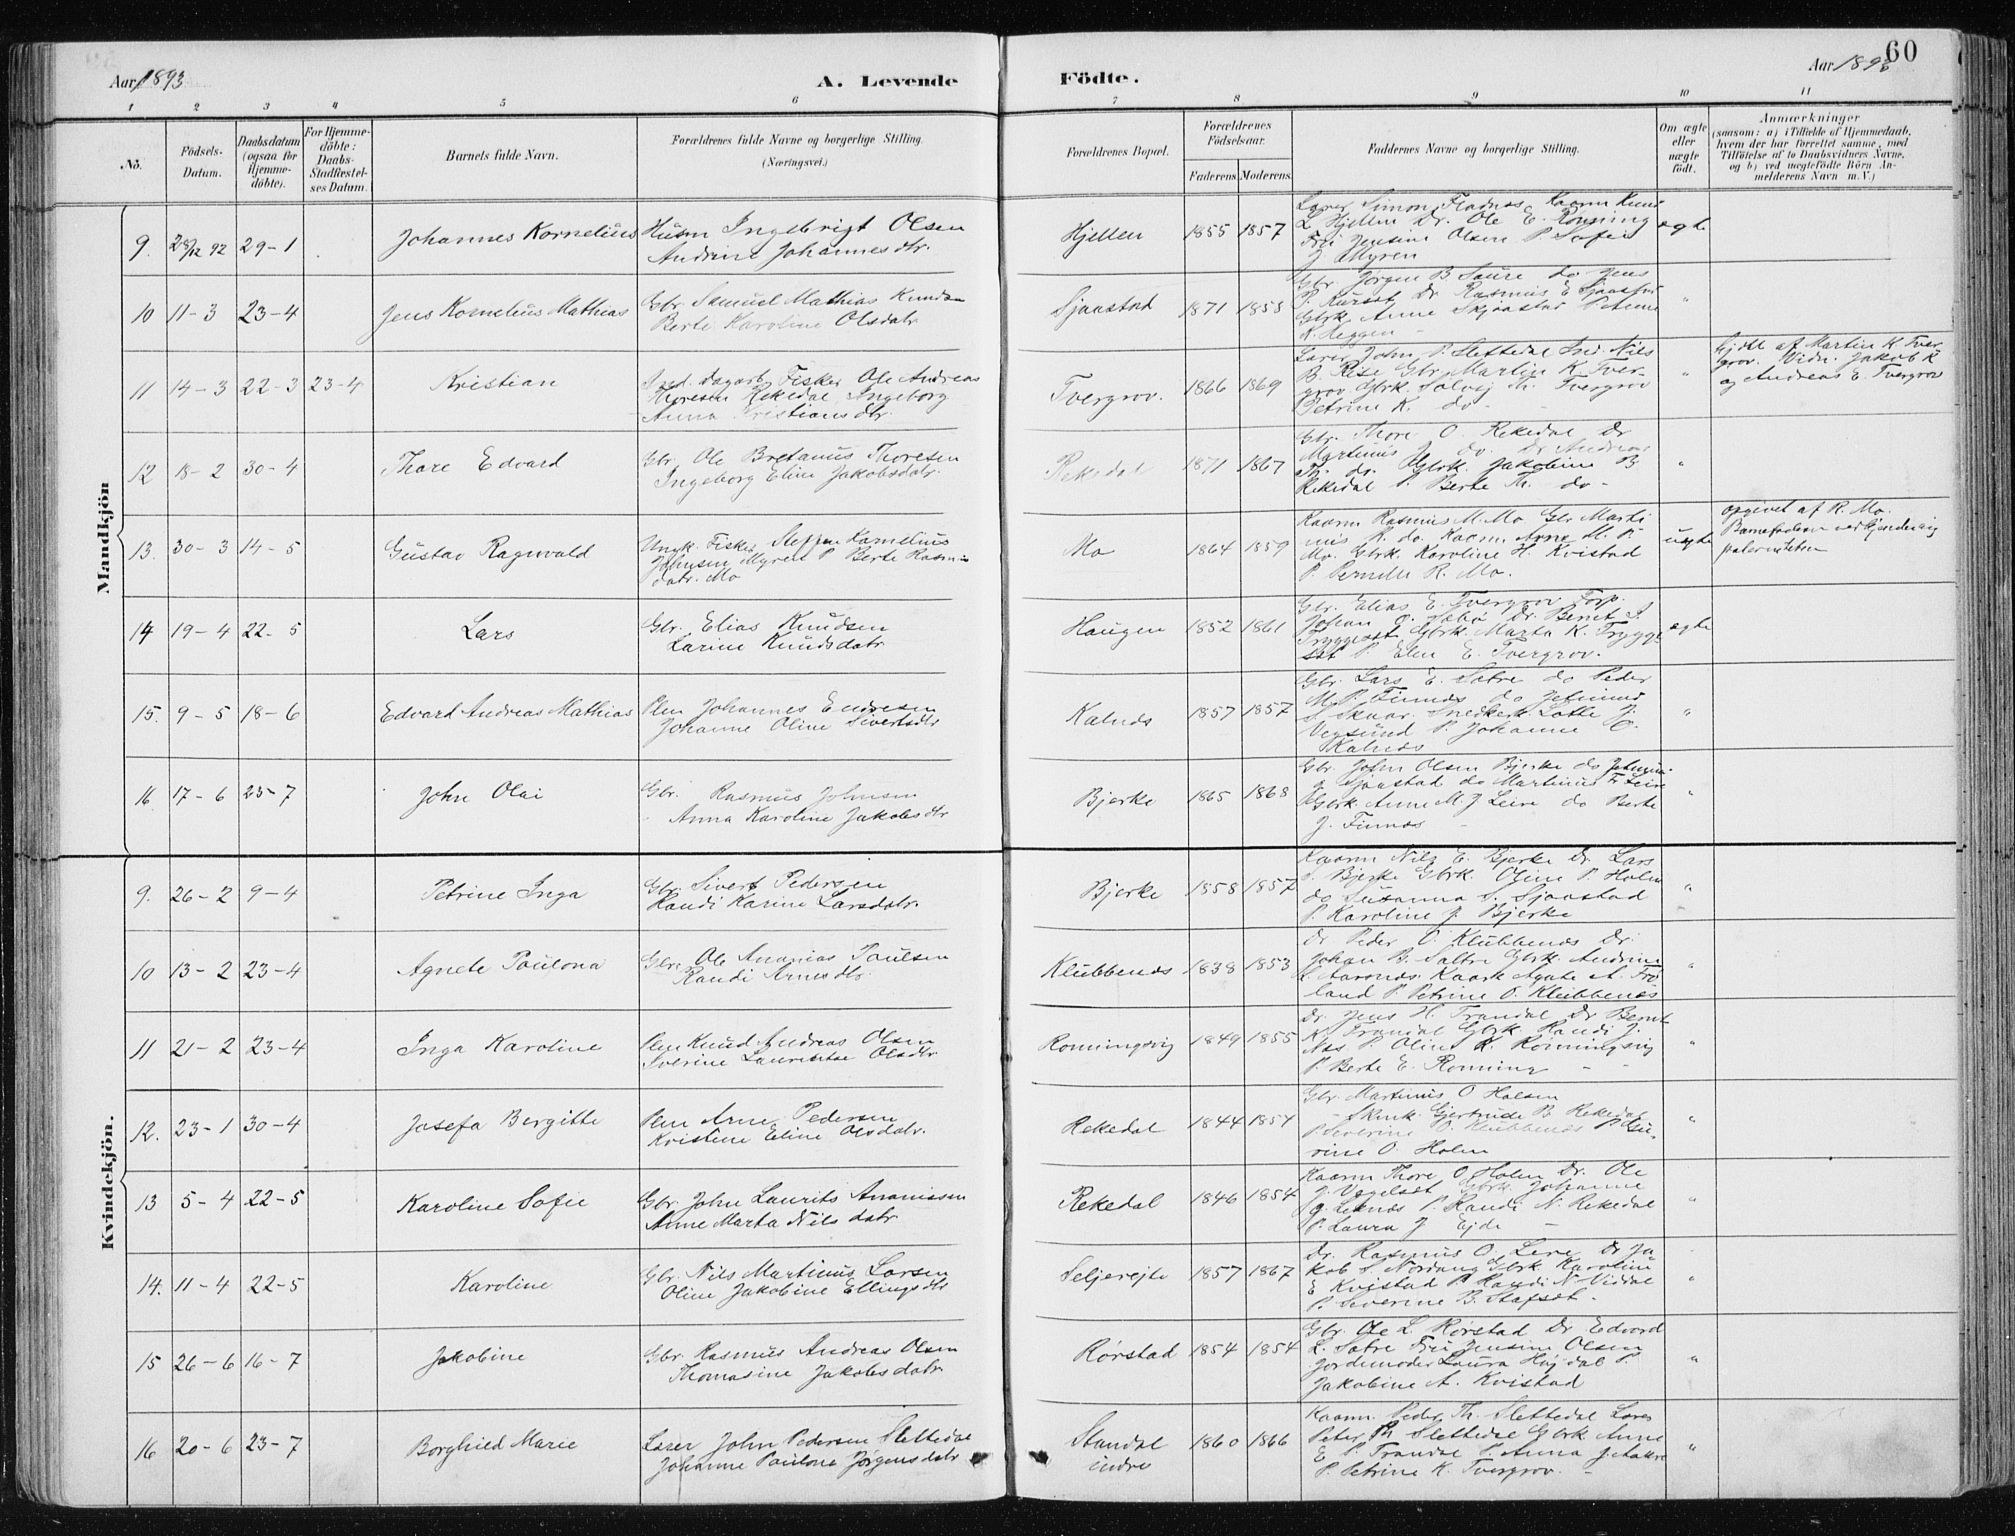 Aar 1893
A. Levende
Födte.
Aar 1893
60
1 2 3 4 5 6 7 8 9 10 11
No.
Födsels-Datum.
Daabsdatum (ogsaa for Hjemme-döbte).
For Hjemme-döbte: Daabs-Stadfæstel-ses Datum.
Barnets fulde Navn.
Forældrenes fulde Navne og borgerlige Stilling. (Næringsvei.)
Forældrenes Bopæl.
Forældrenes Födselsaar.
Faderens. Moderens.
Faddernes Navne og borgerlige Stilling.
Om ægte eller uægte födt.
Anmærkninger
(saasom: a) i Tilfælde af Hjemmedaab, hvem der har forrettet samme, med Tilföielse af to Daabsvidners Navne, og b) ved uægtefödte Börn An-melderens Navn m. V.)
Mandkjön
9. 28/12 92 29-1 Johannes Kornelius
Husm Ingebrigt Olsen
Andrine Johannesdtr.
Hjellen 1855 1857
Lærer Simon Fladnes Kaarm Knut
L Hjellen Dr. Ole E. Rønning
Frü Jensine Olsen P. Sofie
J. Myren
ægte
10 11-3 23-4 Jens Kornelius Mathias
Gbr. Samuel Mathias Knudsen
Berte Karoline Olsdatr.
Sjaastad 1871 1858
Gbr Jørgen B Saure do Jens
P. Dr. Rasmus E Sjaastad
Gbrk Anne Skjaastad P Anne
K. Heggen
"
11 14-3 22-3 23-4 Kristian
Ole Andreas
Thoresen Rekedal Ingeborg
Anna Kristiansdtr.
Tvergrov. 1866 1869
Lærer John P. Slettedal Ind. Nils
B. Rise Gbr Martin K Tver-
grov Gbrk. Solvej Tvergrov
Petrine K. do -
"
Hjdbt af Martin K Tver
grov. Vidn. Jakob K
og Andreas E. Tvergrov
12 18-2 30-4 Thore Edvard
Gbr. Ole Bretanus Thoresen
Ingeborg Eline Jakobsdatr.
Rekedal 1871 1867
Gbr. Thore O. Rekedal Dr
Martinus J do. Dr Andreas
Th. do. Gbrk. Jakobine B
Rekedal P. Berte Th. do -
"
13. 30-3 14-5 Gustav Ragnvald
Ungk. Fisker Steffen Kornelius
Johnsen Myren P Berte Rasmus
datr. Mo
Mo 1864 1859
Kaarm Rasmus M. Mo Gbr Marti
nus R. do Kaarm Arne M. P.
Mo. Gbrk Karoline H. Kvistad
P. Pernille R. Mo.
uægte
opgivet af R. Mo.
Barnefaderen vedkjender sig
paterniteten
14 19-4 22-5 Lars
Gbr. Elias Knudsen
Larine Knudsdatr.
Haugen 1852 1861
Gbr. Elias E. Tvergrov Forp.
Johan O. Sæbø Dr. Bernt I
Tryggeset Gbrk. Marta K. Trygge
set P. Elen E. Tvergrov.
ægte
15. 9-5 18-6 Edvard Andreas Mathias
Plm Johannes Endresen
Johanne Oline Sivertsdtr
Kalnæs 1857 1857
Gbr. Lars E. Sætre do Peder
M P. Finnes do Jetmund
S. Skaar. Snedkerk Lotte J.
Vegsund P. Johanne E.
Kalnæs
"
16. 17-6 23-7 John Olai
Gbr. Rasmus Johnsen
Anna Karoline Jakobsdtr
Bjerke 1865 1868
Gbr. John Olsen Bjerke do
J Sjaastad do Martinus F Leire
Gbrk Anne M. J Leire do Berte
J. Finnes
"
Kvindekjön.
9. 26-2 9-4 Petrine Inga
Gbr. Sivert Pedersen
Randi Karine Larsdatr.
Bjerke 1858 1857
Kaarm Nils E. Bjerke Dr. Lars
S. Bjerke Gbrk. Oline P Holm
do Susanna S. Sjaastad
P. Karoline J. Bjerke
"
10 13-2 23-4 Agnete Paulona
Gbr. Ole Ananias Paulsen
Randi Arnesdtr.
Klubbenæs 1838 1853
Dr Peder O Klubbenæs Dr.
Johan B. Sætre Gbrk Andrine
L. Aarsnæs. Kaark Agate A. Fri
land P. Petrine O. Klubbenæs
"
11 21-2 23-4 Inga Karoline
Plm Knud Andreas Olsen
Iverine Laurentse Olsdtr
Rønningsvig 1849 1855
Dr. Jens H. Trandal Dr Bernt
K Trandal Gbrk Randi J.
Næs P Oline K. Rønningsvig
P. Berte E. Rønning -
"
12. 23-1 30-4 Josefa Bergitte
Plm Arne Pedersen
Kristine Eline Olsdatr.
Rekedal 1844 1854
Gbr. Martinus O Holsen
Gjertrude B Rekedal
P. Severine O. Klubbenæs P
rine O. Holm
"
13 5-4 22-5 Karoline Sofie
Gbr John Laurits Ananiasen
Anne Marta Nilsdatr.
Rekedal 1846 1854
Kaarm Thore O Holm Dr. Ole
J. Gbrk. Johanne
J. Leknæs P. Randi N. Rekedal
P. Laura J Ejde -
"
14. 11-4 22-5 Karoline
Gbr Nils Martinus Larsen
Oline Jakobine Ellingsdtr
Seljerejte 1857 1867
Dr. Rasmus O. Leire Dr Ja
kob S Nordang Gbrk Karoline
E Kvistad P Randi N Viddal
P. Severine B. Stafset.
"
15 26-6 16-7 Jakobine
Gbr. Rasmus Andreas Olsen
Thomasine Jakobsdatr
Rørstad 1854 1854
Gbr. Ole L. Rørstad Dr Edvard
L. Sætre Frü Jensine Olsen
Jordmoder Laura Højdal P.
Jakobine A. Kvistad
"
16 20-6 23-7 Borghild Marie
Lærer John Pedersen Slettedal
Johanne Paulona Jørgensdatr.
Standal
indre
1860 1866
Kaarm Peder Th. Slettedal Lærer
Peter Th Slettedal Gbrk Anne
E. P. Trandal P. Anna J
P. Petrine K. Tvergrov. -
"